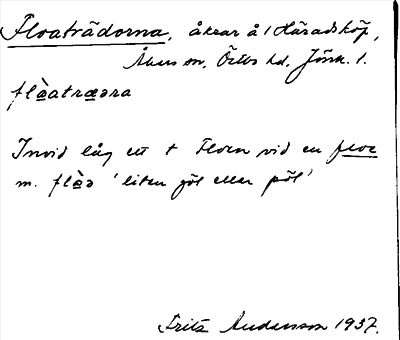 Floaträdorna, åkrar å 1 Häradsköp,
Åkers sn, Östbo hd, Jönk. l.
flòatrædra
Invid låg ett t Floen vid en floe
m. flòə 'liten göl eller pöl'
Fritz Andersson 1937.